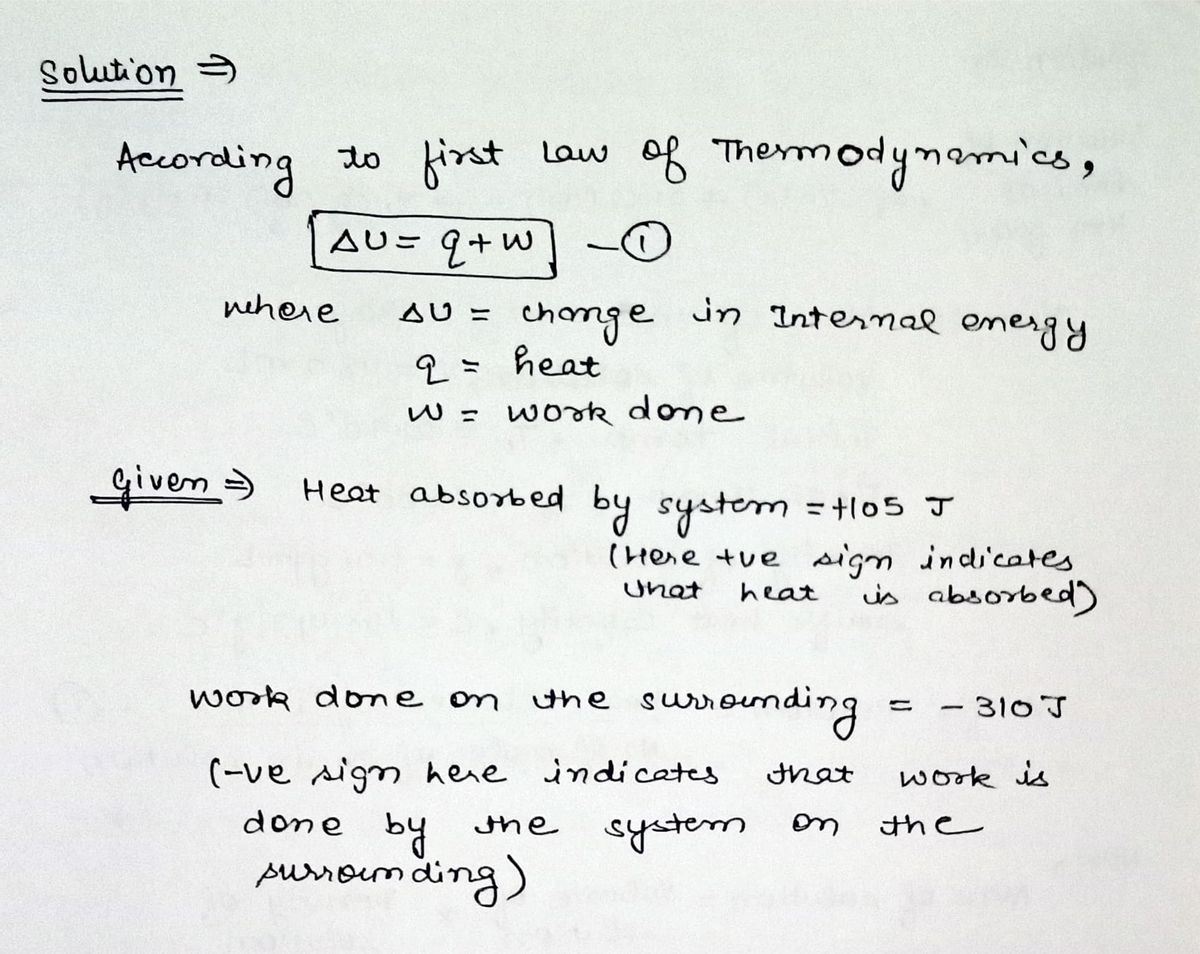 Solution ⇒
According to first Law of Thermodynamics,
ΔU = q + w — ①
where ΔU = change in Internal energy
q = heat
w = work done
given ⇒ Heat absorbed by system = +105 J
(Here +ve sign indicates
that heat is absorbed)
work done on the surrounding = - 310 J
(-ve sign here indicates that work is
done by the system on the
surrounding)